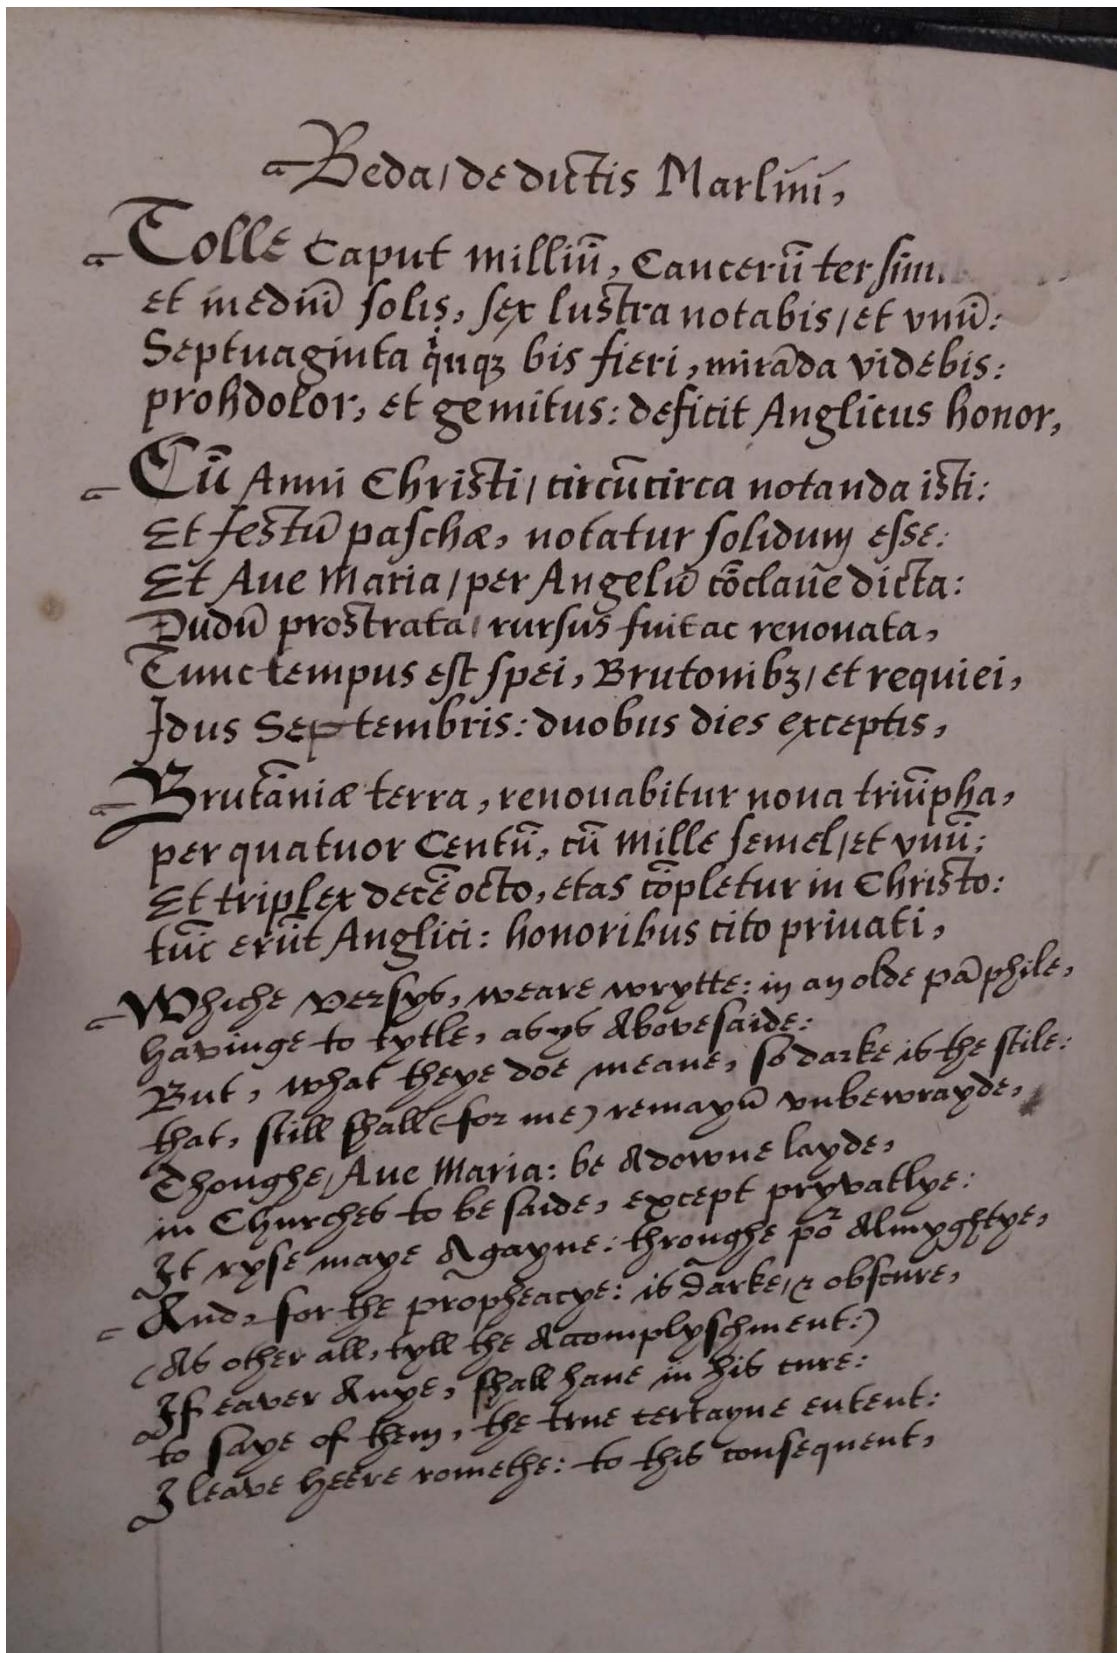 Beda / de dictis Marlini,
Tolle Caput milliū, Cancerū ter
et mediū solis, sex lustra notabis / et vnū:
Septuaginta quīqꝫ bis fieri, mirāda videbis:
prohdolor, et gemitus: deficit Anglicus honor,
Cū Anni Christi / circūcirca notanda isti:
Et festū paschæ, notatur solidum esse:
Et Aue Maria / per Angelū cōclaūe dicta:
Dudū prostrata / rursus fuit ac renouata,
Tunc tempus est spei, Brutonibꝫ / et requiei,
Idus Septembris: duobus dies exceptis,
Brutāniæ terra, renouabitur noua triūpha,
per quatuor Centū, cū Mille semel / et vnū:
Et triplex decē octo, etas cōpletur in Christo:
tūc erūt Anglici: honoribus cito priuati,
Whiche versys, weare wrytte: in an olde pāphile,
havinge to tytle, as ys Abovesaide:
But, what theye doe meane, so darke is the stile:
that, still shall (for me) remayū vnbewrayde,
Thoughe / Aue Maria: be Adowne layde,
in Churches to be saide, except pryvatlye:
It ryse maye Agayne: throughe por Almyghtye,
And, for the propheacye: is darke, & obscure,
(As other all, tyll the Accomplyschment:)
If eaver Anye, shall haue in his cure:
to saye of them, the true certayne entent:
I leave heere romethe: to this consequent,